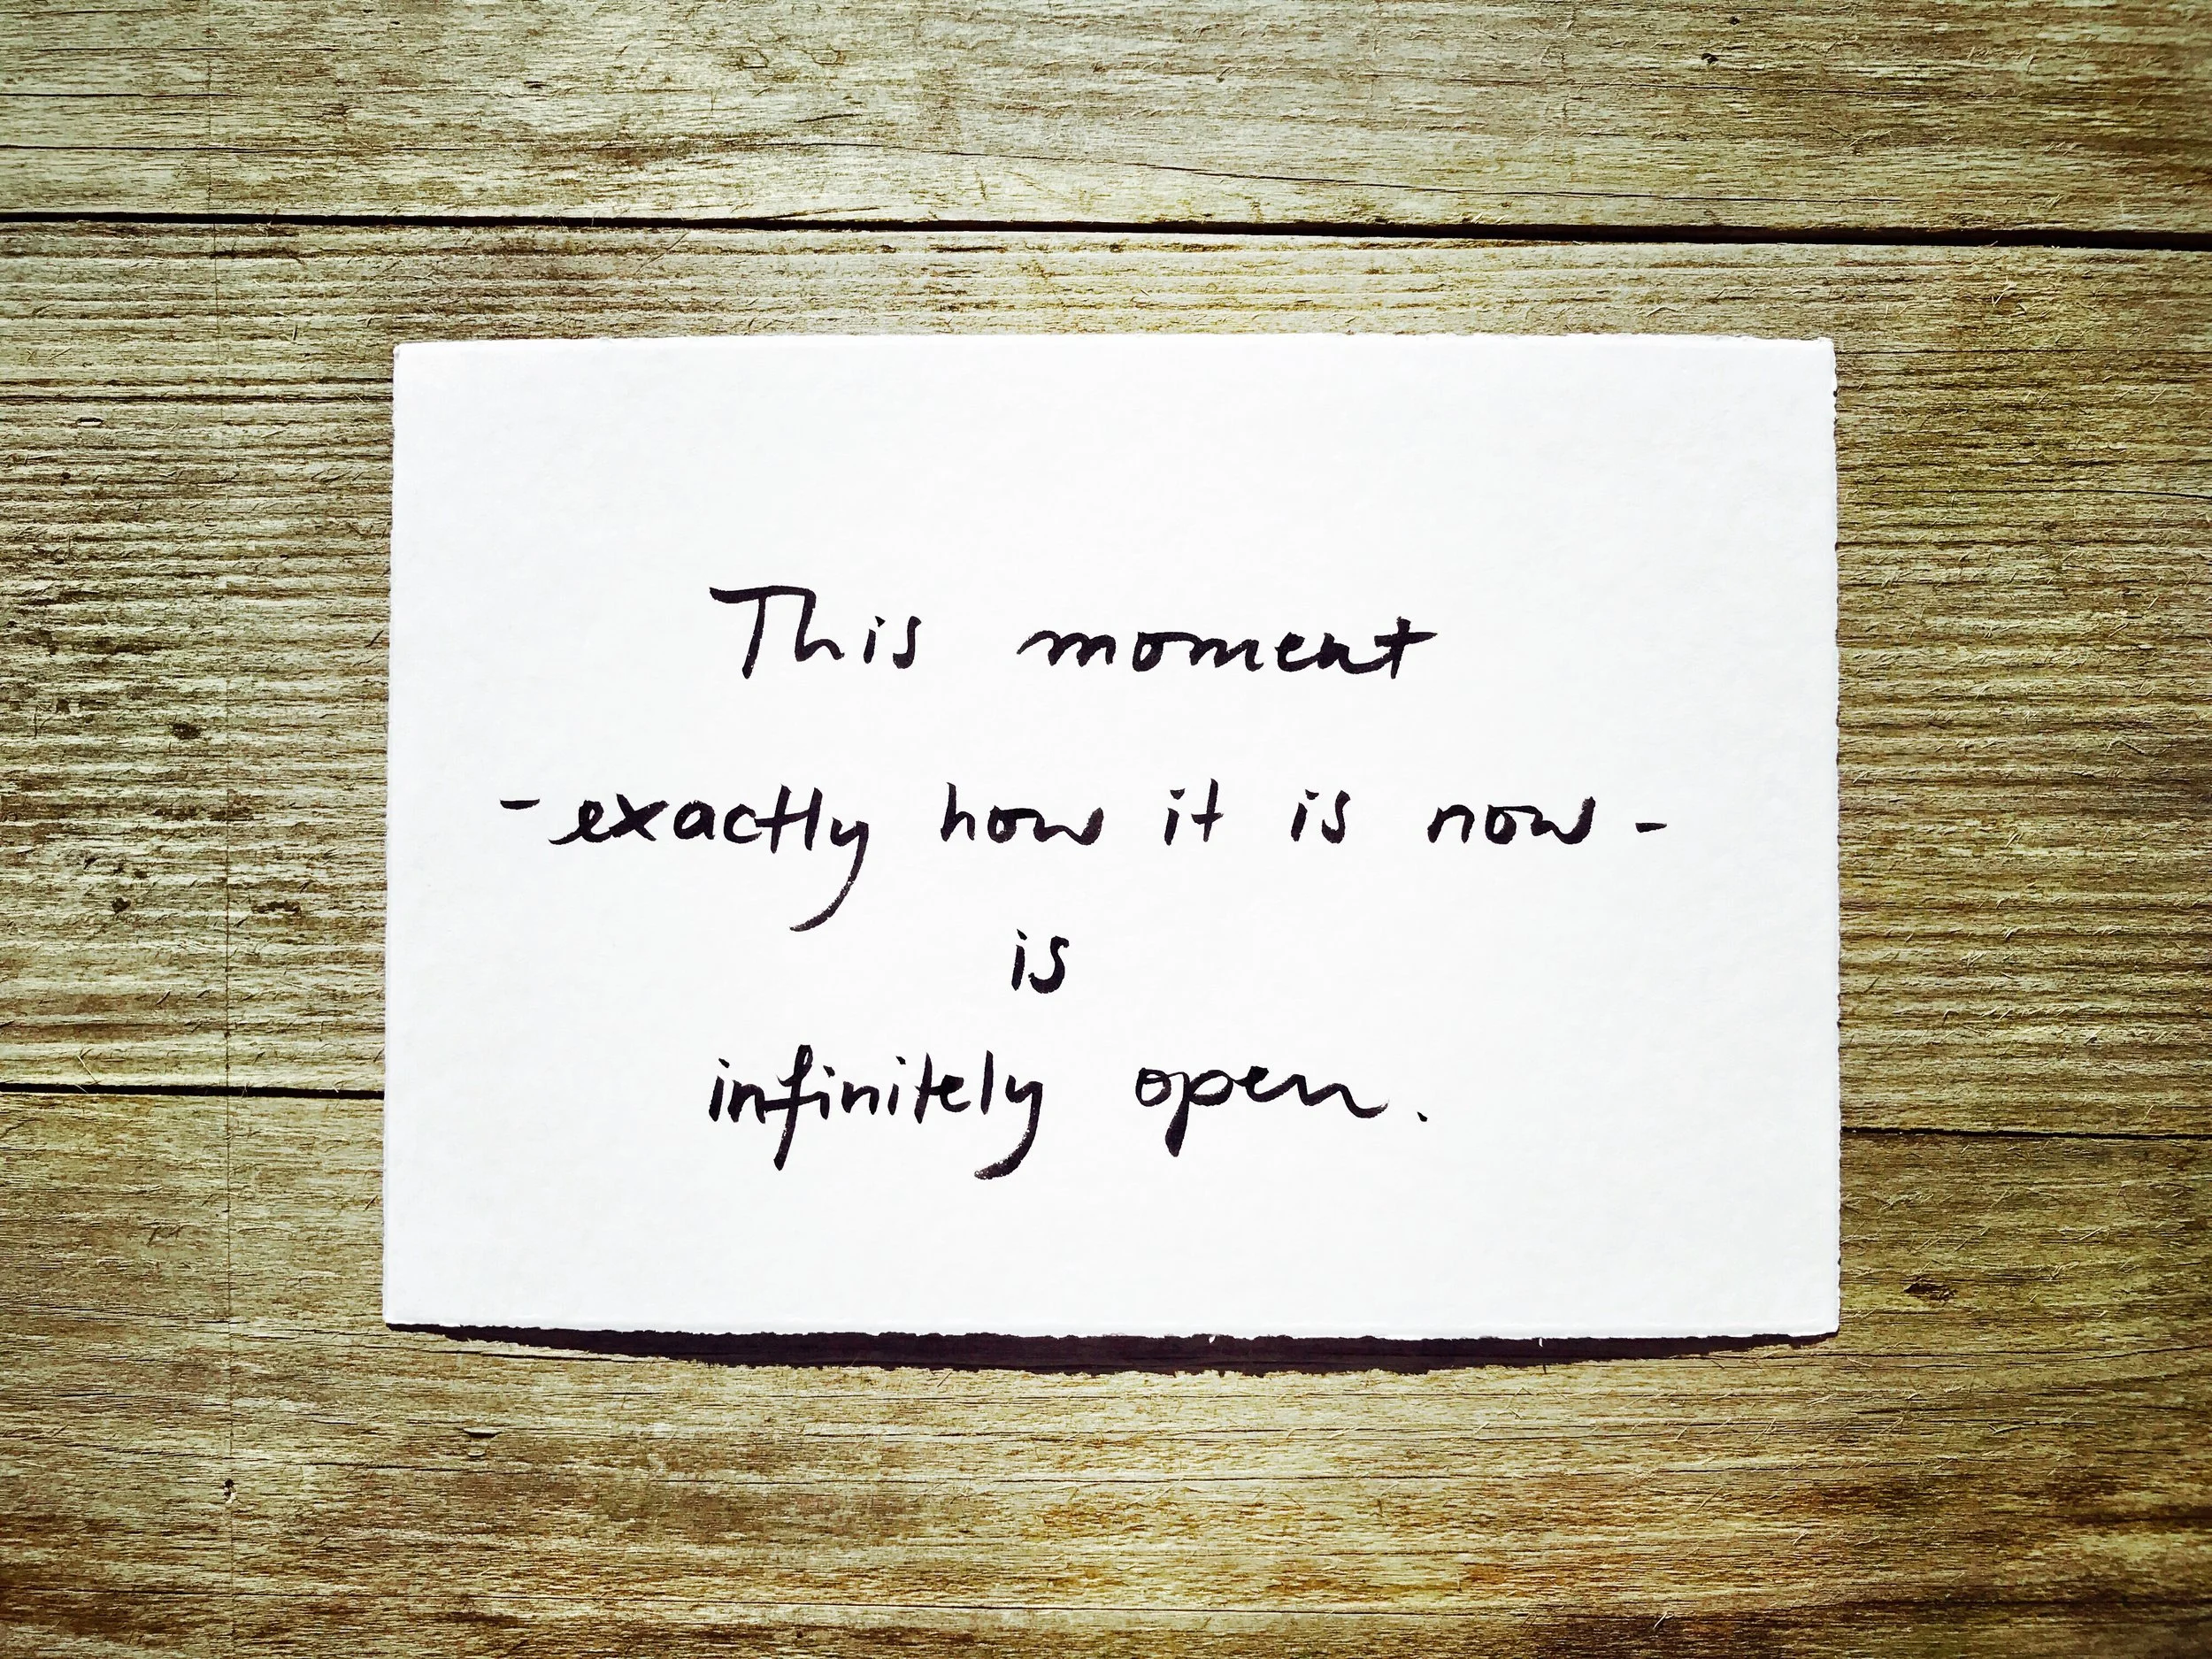 This moment
- exactly how it is now -
is
infinitely open.